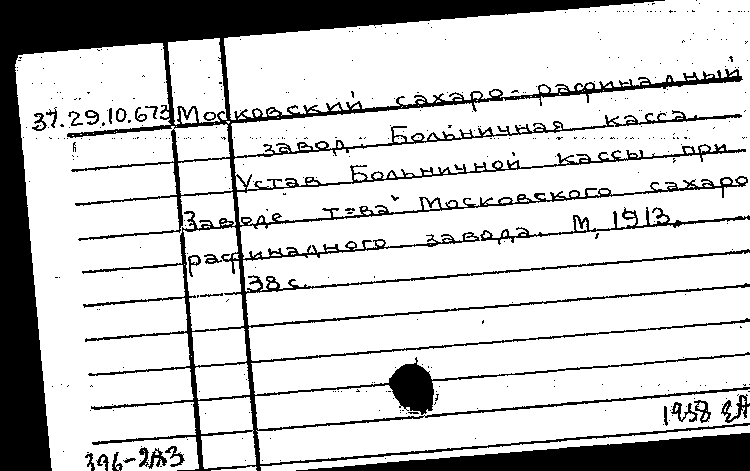 37.29.10.673 Московский сахаро-рафинадный
завод. Больничная касса.
Устав Больничной кассы при
Заводе т=ва Московского сахаро
рафинадного завода. М, 1913.
38 с.
1958
396-2А3